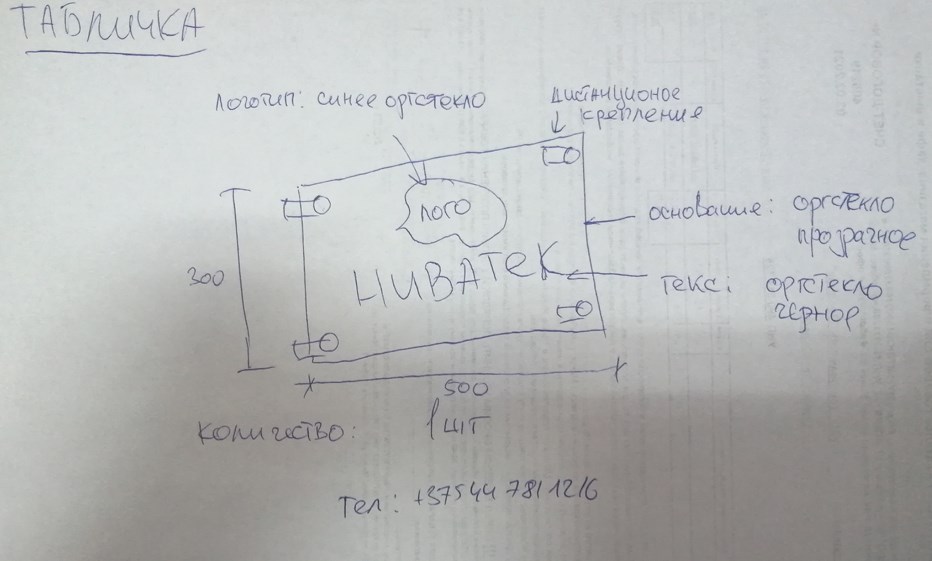 ТАБЛИЧКА
Логотип: синее оргстекло
дистнционое
крепления
лого
основание: оргстекло
прозрачное
НИВАТЕК
текс: оргстекло
чёрное
300
500
количество: 1 шт
тел: +375 44 781 12 16